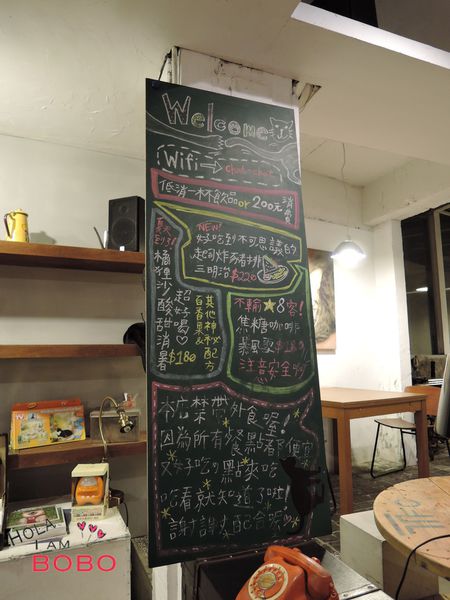 Welcome
Wifi → chat-chat
低消一杯飲品or 200元消費
夏天到了!!
橘狸沙
酸甜消暑
超好喝♡
$180
百香果&
其他神秘配方
NEW!
好吃到不可思議的
起司炸豬排
三明治 $220
不輸★8客!
焦糖咖啡
暴風雪
注意安全
本店禁帶外食喔!
因為所有餐點都平價
又好吃的 點來吃
吃看就知道了啦!
謝謝配合
HOLA!
I AM
BOBO